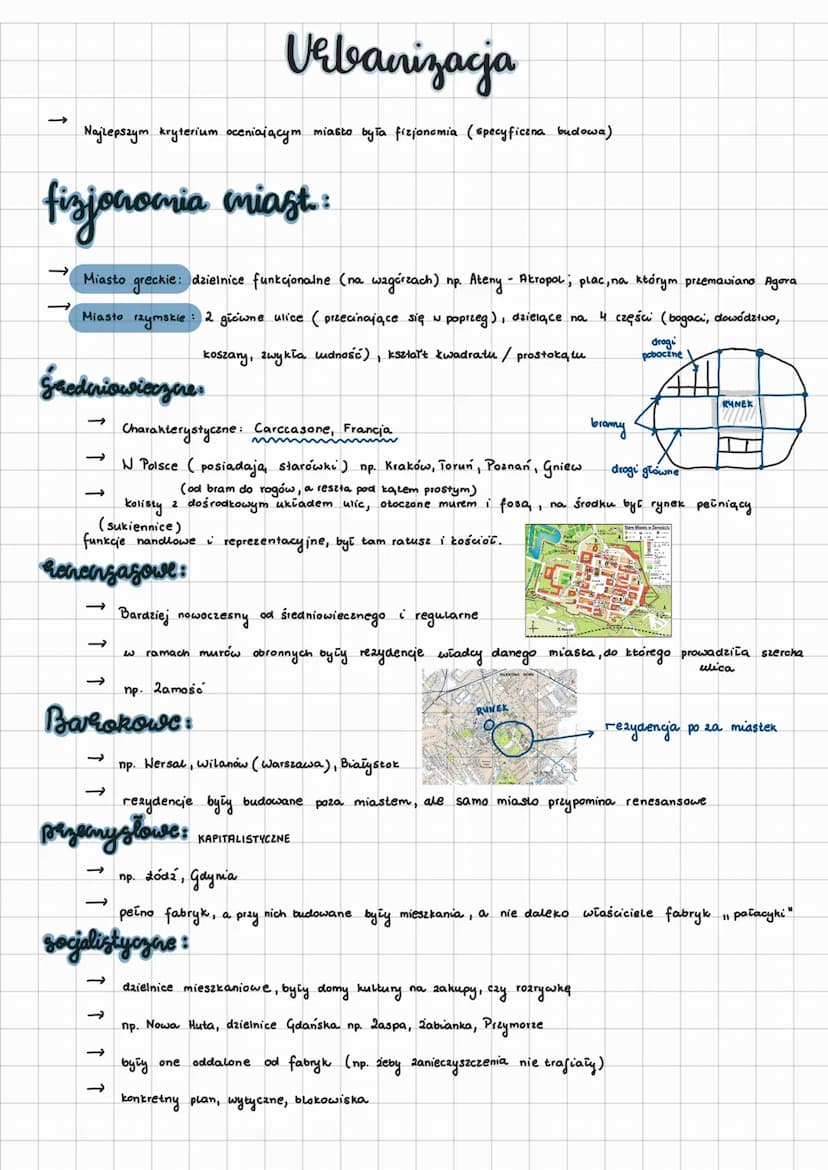 Urbanizacja
→ Najlepszym kryterium oceniającym miasto była fizjonomia (specyficzna budowa)
fizjonomia miast:
→ Miasto greckie: dzielnice funkcjonalne (na wzgórzach) np. Ateny - Akropol; plac, na którym przemawiano Agora
→ Miasto rzymskie: 2 główne ulice (przecinające się w poprzeg), dzielące na 4 części (bogaci, dowództwo,
koszary, zwykła ludność), kształt kwadratu / prostokątu
drogi
poboczne
RYNEK
bramy
drogi główne
Średniowieczne:
→ Charakterystyczne: Carccasone, Francja
→ W Polsce (posiadają starówki) np. Kraków, Toruń, Poznań, Gniew
(od bram do rogów, a reszta pod kątem prostym)
→ kolisty z dośrodkowym układem ulic, otoczone murem i fosą, na środku był rynek pełniący
(sukiennice)
funkcje handlowe i reprezentacyjne, był tam ratusz i kościół.
Renensasowe:
→ Bardziej nowoczesny od średniowiecznego i regularne
→ w ramach murów obronnych były rezydencje władcy danego miasta, do którego prowadziła szeroka
ulica
→ np. Zamość
Barokowe:
RYNEK
rezydencja po za miastek
→ np. Wersal, Wilanów (Warszawa), Białystok
→ rezydencje były budowane poza miastem, ale samo miasto przypomina renesansowe
przemysłowe: KAPITALISTYCZNE
→ np. Łódź, Gdynia
→ pełno fabryk, a przy nich budowane były mieszkania, a nie daleko właściciele fabryk „pałacyki"
socjalistyczne:
→ dzielnice mieszkaniowe, były domy kultury na zakupy, czy rozrywkę
→ np. Nowa Huta, dzielnice Gdańska np. Zaspa, Żabianka, Przymorze
→ były one oddalone od fabryk (np. żeby zanieczyszczenia nie trafiały)
→ konkretny plan, wytyczne, blokowiska